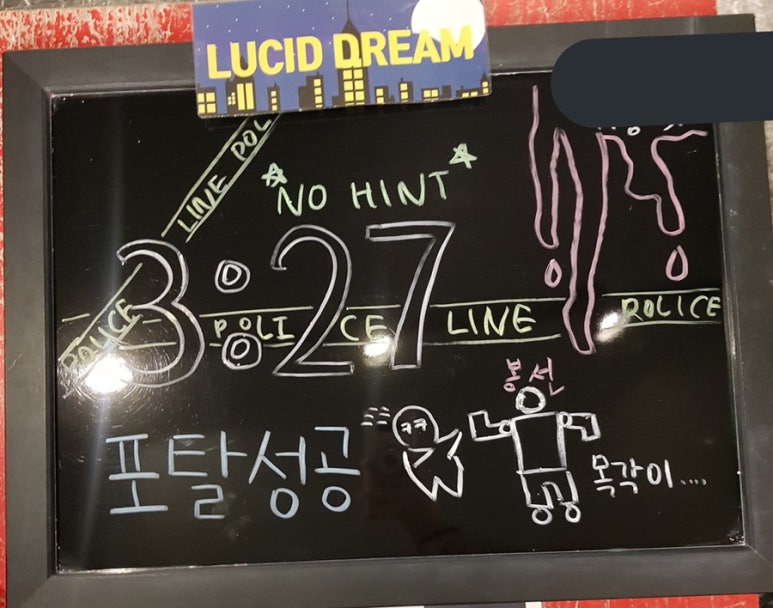 LUCID DREAM
LINE POL
NO HINT
3:27
POLICE
POLICE LINE
POLICE
봉선
포탈성공
ㅋㅋ
목각이....